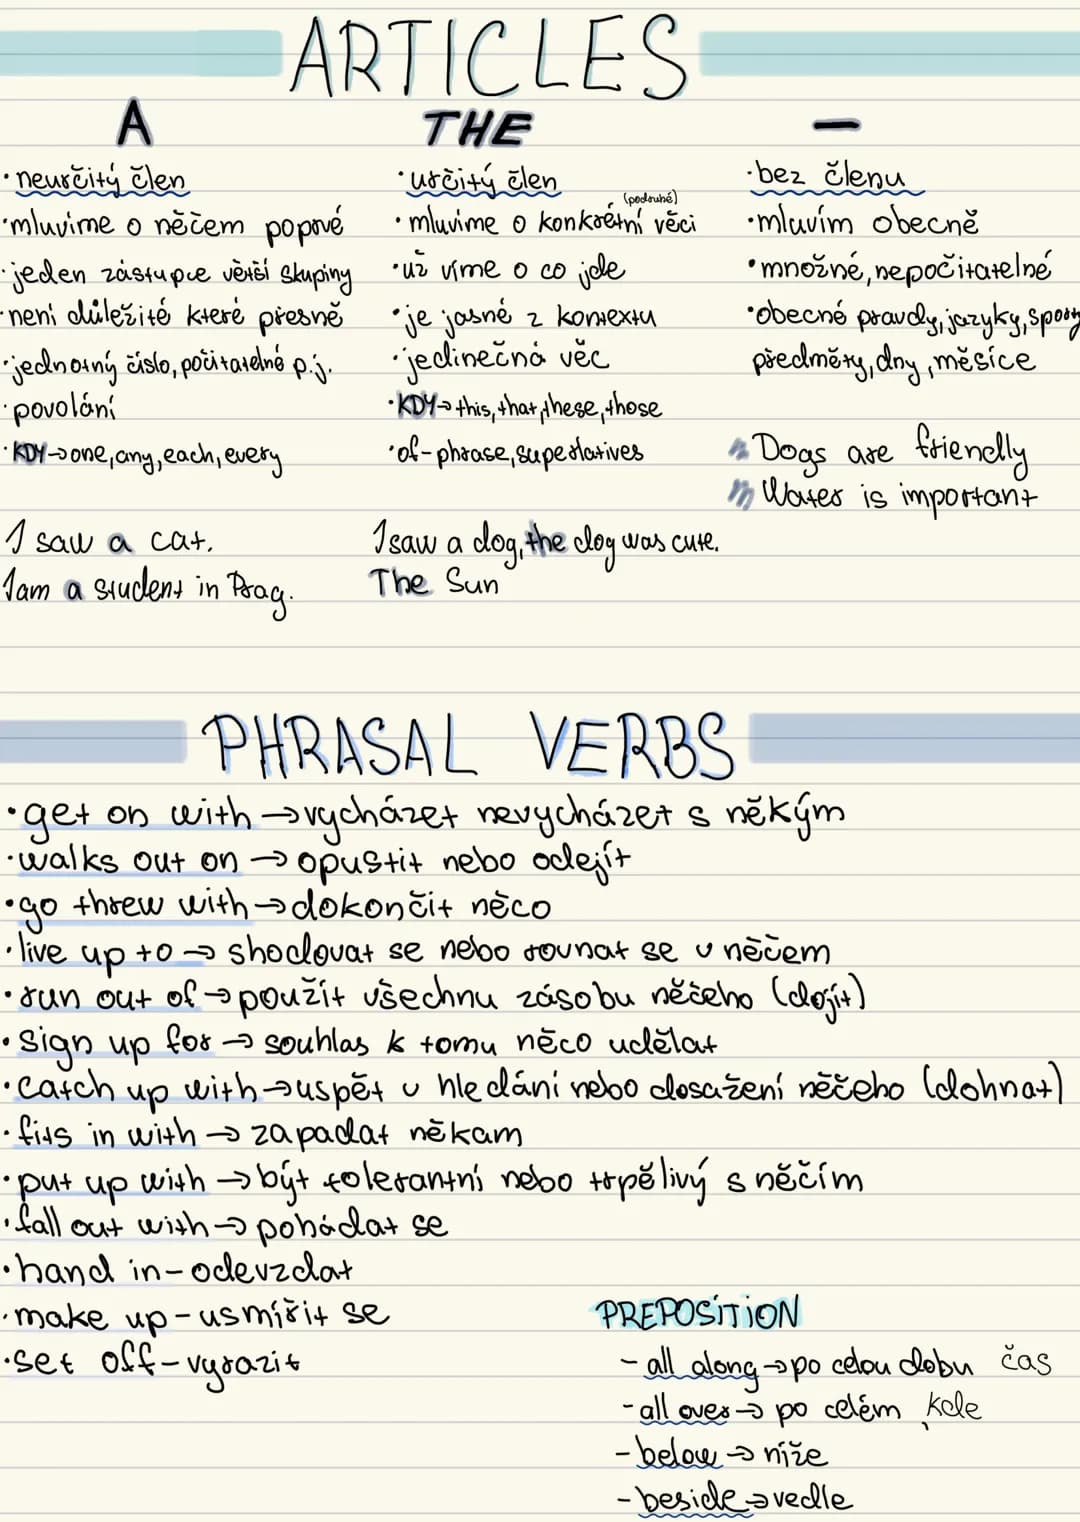 ARTICLES
A
•neurčitý člen
•mluvíme o něčem poprvé
•jeden zástupce větší skupiny
•není důležité které přesně
•jednotný číslo, počitatelné p.j.
•povolání
•KDY→one, any, each, every
I saw a cat.
I am a student in Prag.
THE
•určitý člen
(podruhé)
•mluvíme o konkrétní věci
•už víme o co jde
•je jasné z kontextu
•jedinečná věc
•KDY→this, that, these, those
•of-phrase, superlatives
I saw a dog, the dog was cute.
The Sun
–
•bez členu
•mluvím obecně
•množné, nepočitatelné
•obecné pravdy, jazyky, sporty
předměty, dny, měsíce
Dogs are friendly
Water is important
PHRASAL VERBS
•get on with→vycházet nevycházet s někým
•walks out on→opustit nebo odejít
•go threw with→dokončit něco
•live up to→shodovat se nebo rovnat se v něčem
•run out of→použít všechnu zásobu něčeho (dojít)
•sign up for→souhlas k tomu něco udělat
•catch up with→uspět v hledání nebo dosažení něčeho (dohnat)
•fits in with→zapadat někam
•put up with→být tolerantní nebo trpělivý s něčím
•fall out with→pohádat se
•hand in-odevzdat
•make up-usmířit se
•set off-vyrazit
PREPOSITION
-all along→po celou dobu čas
-all over→po celém, kde
-below→níže
-beside→vedle